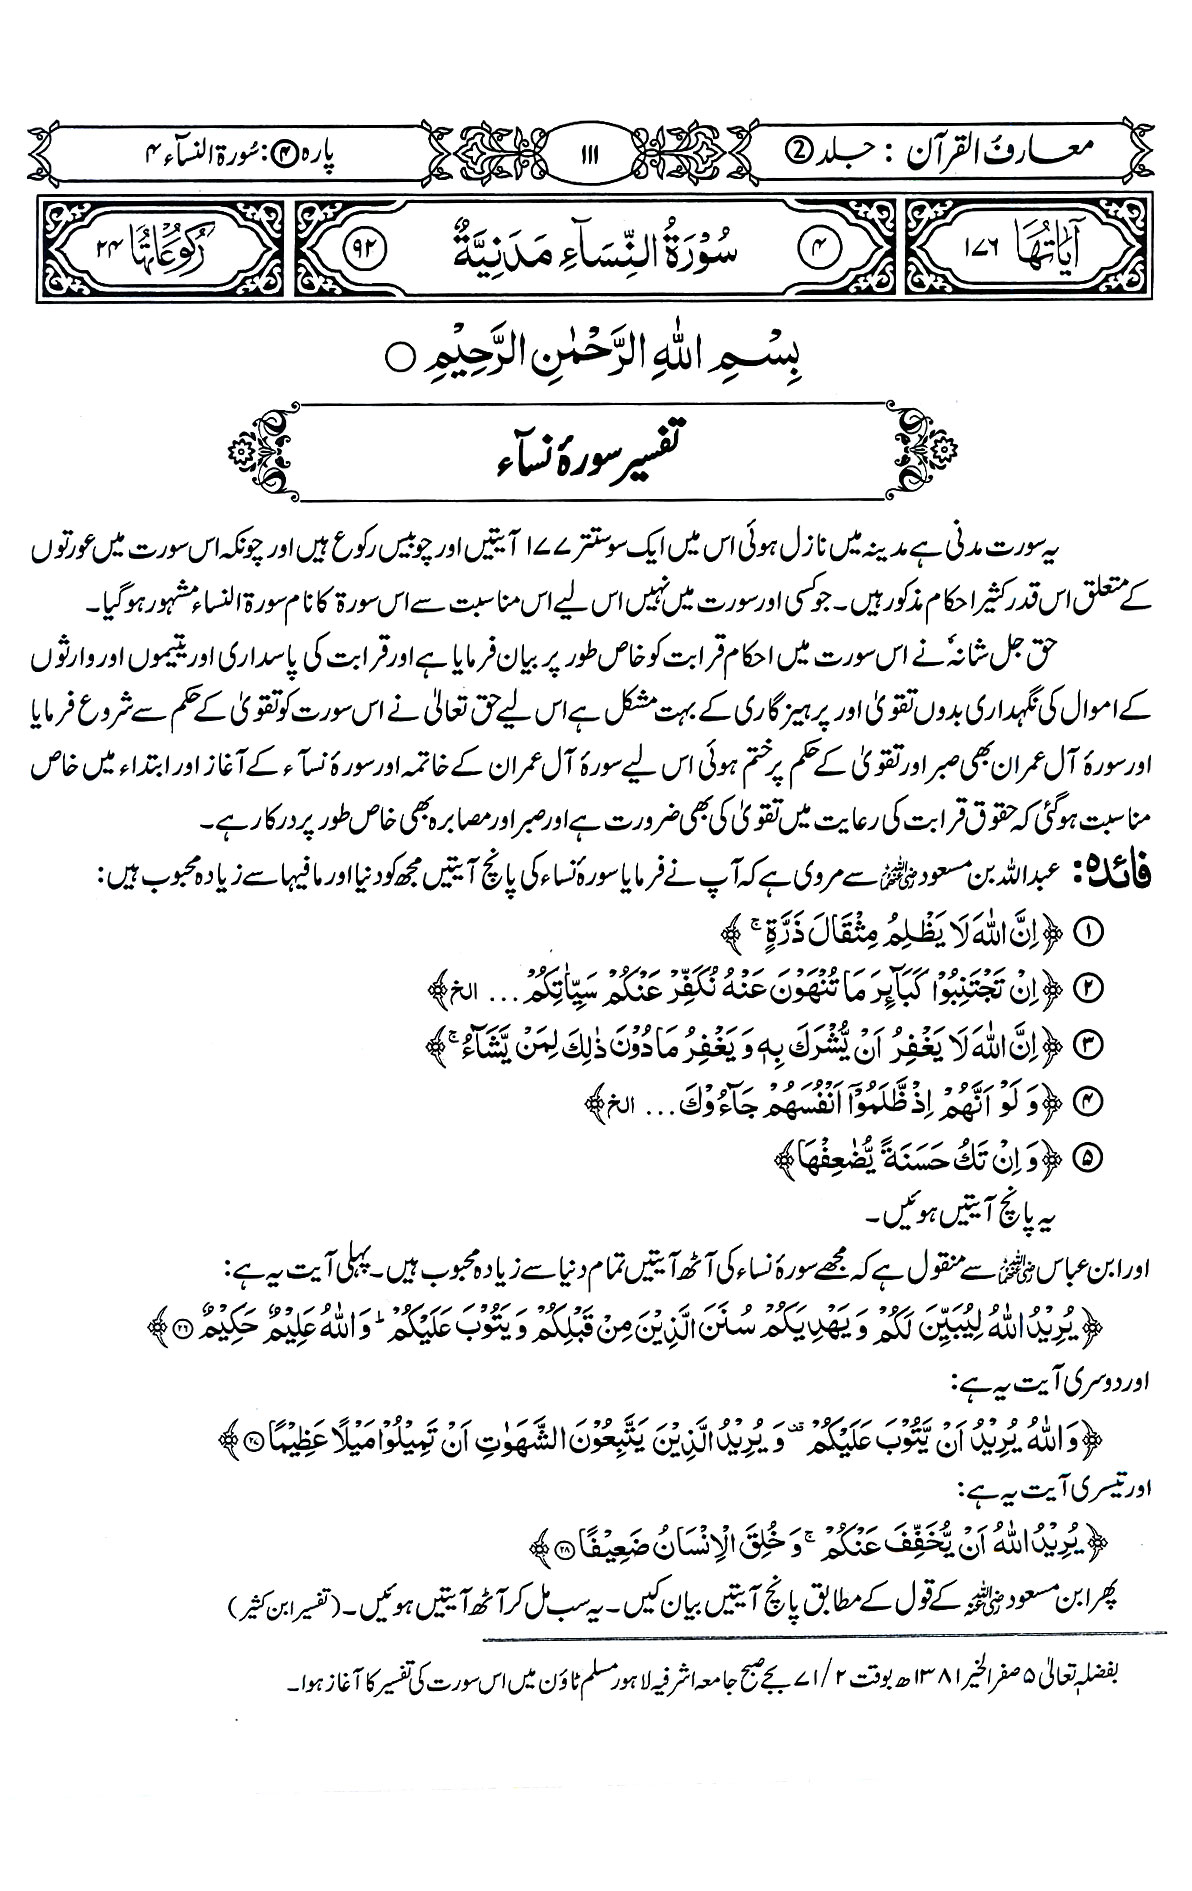 معارف القرآن : جلد 2
۱۱۱
پارہ ۴: سُورۃ النسآء ۴
اٰیَاتُهَا ۱۷۶
۴ سُوْرَةُ النِّسَآءِ مَدَنِیَّةٌ ۹۲
رُكُوْعَاتُهَا ۲۴
بِسْمِ اللّٰهِ الرَّحْمٰنِ الرَّحِیْمِ ○
تفسیر سورۂ نسآء
یہ سورت مدنی ہے مدینہ میں نازل ہوئی اس میں ایک سو ستتر ۱۷۷ آیتیں اور چوبیس رکوع ہیں اور چونکہ اس سورت میں عورتوں
کے متعلق اس قدر کثیر احکام مذکور ہیں۔ جو کسی اور سورت میں نہیں اس لیے اس مناسبت سے اس سورۃ کا نام سورۃ النساء مشہور ہو گیا۔
حق جل شانہٗ نے اس سورت میں احکام قرابت کو خاص طور پر بیان فرمایا ہے اور قرابت کی پاسداری اور یتیموں اور وارثوں
کے اموال کی نگہداری بدوں تقویٰ اور پرہیز گاری کے بہت مشکل ہے اس لیے حق تعالیٰ نے اس سورت کو تقویٰ کے حکم سے شروع فرمایا
اور سورۂ آل عمران بھی صبر اور تقویٰ کے حکم پر ختم ہوئی اس لیے سورۂ آل عمران کے خاتمہ اور سورۂ نسآء کے آغاز اور ابتداء میں خاص
مناسبت ہو گئی کہ حقوق قرابت کی رعایت میں تقویٰ کی بھی ضرورت ہے اور صبر اور مصابرہ بھی خاص طور پر درکار ہے۔
فائدہ: عبداللہ بن مسعود رضی اللہ عنہ سے مروی ہے کہ آپ نے فرمایا سورۂ نساء کی پانچ آیتیں مجھ کو دنیا اور مافیہا سے زیادہ محبوب ہیں:
۱ ﴿اِنَّ اللّٰهَ لَا یَظْلِمُ مِثْقَالَ ذَرَّةٍ ۚ﴾
۲ ﴿اِنْ تَجْتَنِبُوْا كَبَآىِٕرَ مَا تُنْهَوْنَ عَنْهُ نُكَفِّرْ عَنْكُمْ سَیِّاٰتِكُمْ ... الخ﴾
۳ ﴿اِنَّ اللّٰهَ لَا یَغْفِرُ اَنْ یُّشْرَكَ بِهٖ وَ یَغْفِرُ مَا دُوْنَ ذٰلِكَ لِمَنْ یَّشَآءُ ۚ﴾
۴ ﴿وَ لَوْ اَنَّهُمْ اِذْ ظَّلَمُوْۤا اَنْفُسَهُمْ جَآءُوْكَ ... الخ﴾
۵ ﴿وَ اِنْ تَكُ حَسَنَةً یُّضٰعِفْهَا﴾
یہ پانچ آیتیں ہوئیں۔
اور ابن عباس رضی اللہ عنہ سے منقول ہے کہ مجھے سورۂ نساء کی آٹھ آیتیں تمام دنیا سے زیادہ محبوب ہیں۔ پہلی آیت یہ ہے:
﴿یُرِیْدُ اللّٰهُ لِیُبَیِّنَ لَكُمْ وَ یَهْدِیَكُمْ سُنَنَ الَّذِیْنَ مِنْ قَبْلِكُمْ وَ یَتُوْبَ عَلَیْكُمْ ؕ وَ اللّٰهُ عَلِیْمٌ حَكِیْمٌ ۲۶﴾
اور دوسری آیت یہ ہے:
﴿وَ اللّٰهُ یُرِیْدُ اَنْ یَّتُوْبَ عَلَیْكُمْ ۫ وَ یُرِیْدُ الَّذِیْنَ یَتَّبِعُوْنَ الشَّهَوٰتِ اَنْ تَمِیْلُوْا مَیْلًا عَظِیْمًا ۲۷﴾
اور تیسری آیت یہ ہے:
﴿یُرِیْدُ اللّٰهُ اَنْ یُّخَفِّفَ عَنْكُمْ ۚ وَ خُلِقَ الْاِنْسَانُ ضَعِیْفًا ۲۸﴾
پھر ابن مسعود رضی اللہ عنہ کے قول کے مطابق پانچ آیتیں بیان کیں۔ یہ سب مل کر آٹھ آیتیں ہوئیں۔ (تفسیر ابن کثیر)
بفضلہٖ تعالیٰ ۵ صفر الخیر ۱۳۸۱ھ بوقت ۷۱/۲ بجے صبح جامعہ اشرفیہ لاہور مسلم ٹاؤن میں اس سورت کی تفسیر کا آغاز ہوا۔